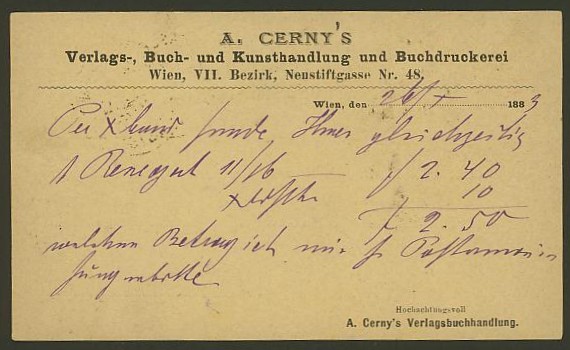 A. CERNY'S
Verlags-, Buch- und Kunsthandlung und Buchdruckerei
Wien, VII. Bezirk, Neustiftgasse Nr. 48.
Wien, den 26/X 1883
Per Xband sende Ihnen gleichzeitig
1 11/16 f 2.40
10
f 2.50
welchen Betrag ich mir
Hochachtungsvoll
A. Cerny's Verlagsbuchhandlung.